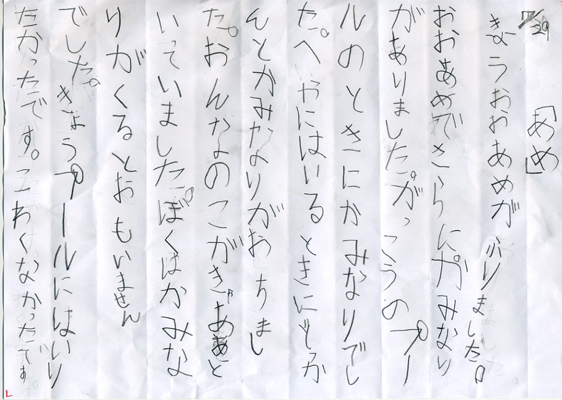 7/29
「あめ」
きょうおおあめがふりました。
おおあめでさらにかみなり
がありました。がっこうのプー
ルのときにかみなりでし
た。へやにはいるときにどっか
んとかみなりがおちまし
た。おんなのこがきゃああと
いていました。ぼくはかみな
りがくるとおもいません
でした。きょうプールにはいり
たかったです。こわくなかったです
L